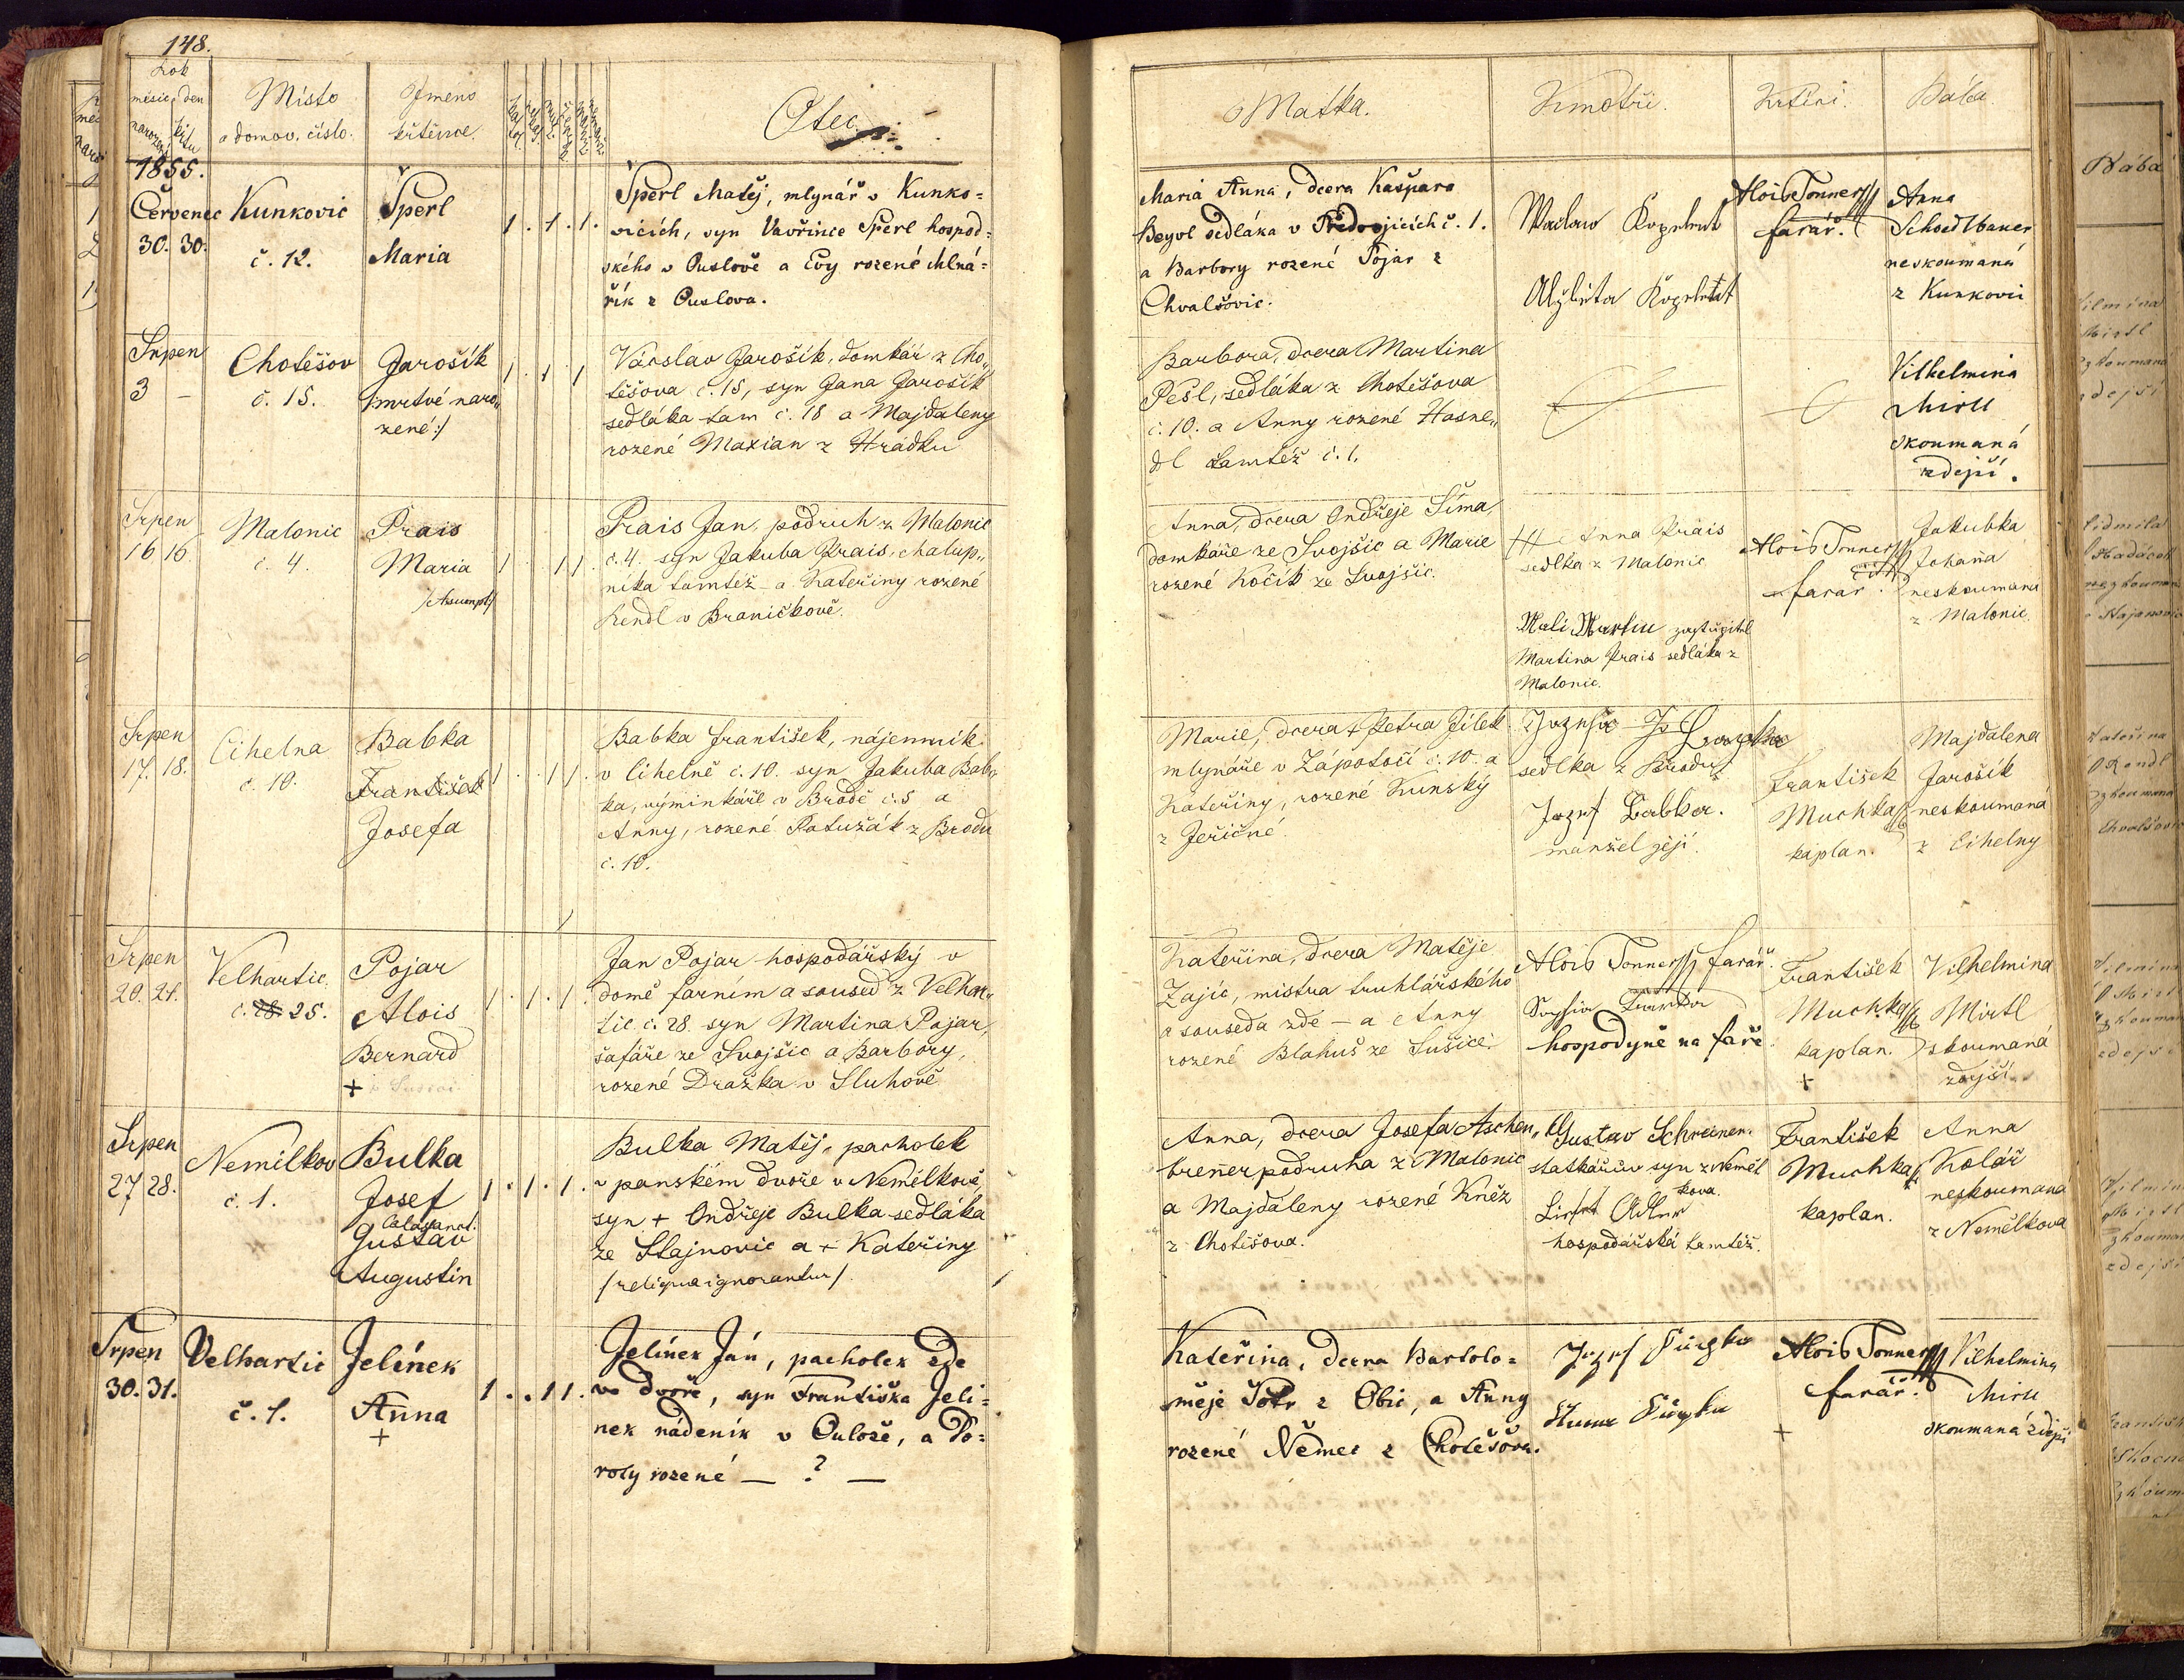 148.
Rok
měsíc, den
narození křtu
Místo
a domov. číslo.
Jméno
křtěnce.
Otec
Matka.
Kmotři.
Křtící.
Bába
1855.
Červenec
30. 30.
Kunkovic
č. 12.
Šperl
Maria
1. 1. 1.
Šperl Matěj, mlynář v Kunko=
vicích, syn Vavřince Šperl hospod=
ského v Puslově a Evy rozené Mlná=
řík z Puslova.
Maria Anna, dcera Kašpara
Beyvl sedláka v Předvojicích č. 1.
a Barbory rozené Pojar z
Chvalšovic.
Alois Tonner
farář.
Anna
Schoedlbauer
neskoumaná
z Kunkovic
Srpen
3 –
Chotěšov
č. 15.
Jarošík
/:mrtvé naro„
zené:/
1 1 1
Vácslav Jarošík, domkář z Cho„
těšova č. 15, syn Jana Jarošík
sedláka tam č. 18 a Majdaleny
rozené Maxian z Hrádku
Barbora, dcera Martina
Pešl, sedláka z Chotěšova
č. 10. a Anny rozené Hasne„
dl tamtéž č. 1.
Vilhelmina
Mirtl
skoumaná
zdejší.
Srpen
16 16.
Malonic
č. 4.
Prais
Maria
/Assumpt/
1 1 1.
Prais Jan, podruh z Malonic
č. 4. syn Jakuba Prais, chalup„
níka tamtéž a Kateřiny rozené
Rendl v Braničkově.
Anna, dcera Ondřeje Šíma
domkáře ze Svojšic a Marie
rozené Kočík ze Svojšic.
††† Anna Prais
sedlka z Malonic
Mali Martin zastupitel
Martina Prais sedláka z
Malonic.
Alois Tonner
farář.
Jakubka
Johaña
neskoumana
z Malonic
Srpen
17. 18.
Cihelna
č. 10.
Babka
František
Josefa
1 . 1 1.
Babka František, nájemník
v Cihelně č. 10. syn Jakuba Bab„
ka, výminkáře v Brodě č. 5 a
Anny, rozené Patužák z Brodu
č. 10.
Marie, dcera † Petra Jílek
mlynáře v Zápotočí č. 10. a
Kateřiny, rozené Kunský
z Jeřičné.
sedlka z Brodu
Jozef Babka.
manžel její.
František
Muchka
kaplan.
Majdalena
Jarošík
neskoumaná
z Cihelny
Srpen
20. 21.
Velhartic.
č. 28. 25.
Pojar
Alois
Bernard
+
1. 1. 1.
Jan Pojar hospodářský v
domě farním a soused z Velhar„
tic č. 28. syn Martina Pojar,
šafáře ze Svojšic a Barbory,
rozené Dražka v Sluhově
Kateřina, dcera Matěje
Zajíc, mistra truhlářského
a souseda zde – a Anny
rozené Blahuš ze Sušice.
Alois Tonner farář.
hospodyně na faře.
František
Muchka
kaplan.
+
Vilhelmina
Mirtl
skoumaná
zdejší
Srpen
27 28.
Nemilkov
č. 1.
Bulka
Josef
Calasanct.
Gustav
Augustin
1. 1. 1.
Bulka Matěj, pacholek
v panském dvoře v Nemělkově
syn + Ondřeje Bulka sedláka
ze Stajnovic a + Kateřiny
/reliqua ignorantur/.
Anna, dcera Josefa Aschen„
breñer podruha z Malonic
a Majdaleny rozené Kněz
z Chotěšova.
Gustav Schreiner.
statkářův syn z Neměl
kova.
hospodářská tamtéž.
František
Muchka
kaplan.
Anna
Kolář
neskoumana
z Nemělkova
Srpen
30. 31.
Velhartic
č. 1.
Jelínek
Anna
+
1. . 1 1.
Jelínek Ján, pacholek zde
ve dvoře, syn Františka Jelí=
nek nádeník v Čulože, a Do=
roty rozené — ? —
Kateřina, dcera Bartolo=
měje Totr z Obic, a Anny
rozené Němec z Chotěšova.
Alois Tonner
farář.
+
Vilhelmina
Mirtl
skoumaná zdejší
Bába